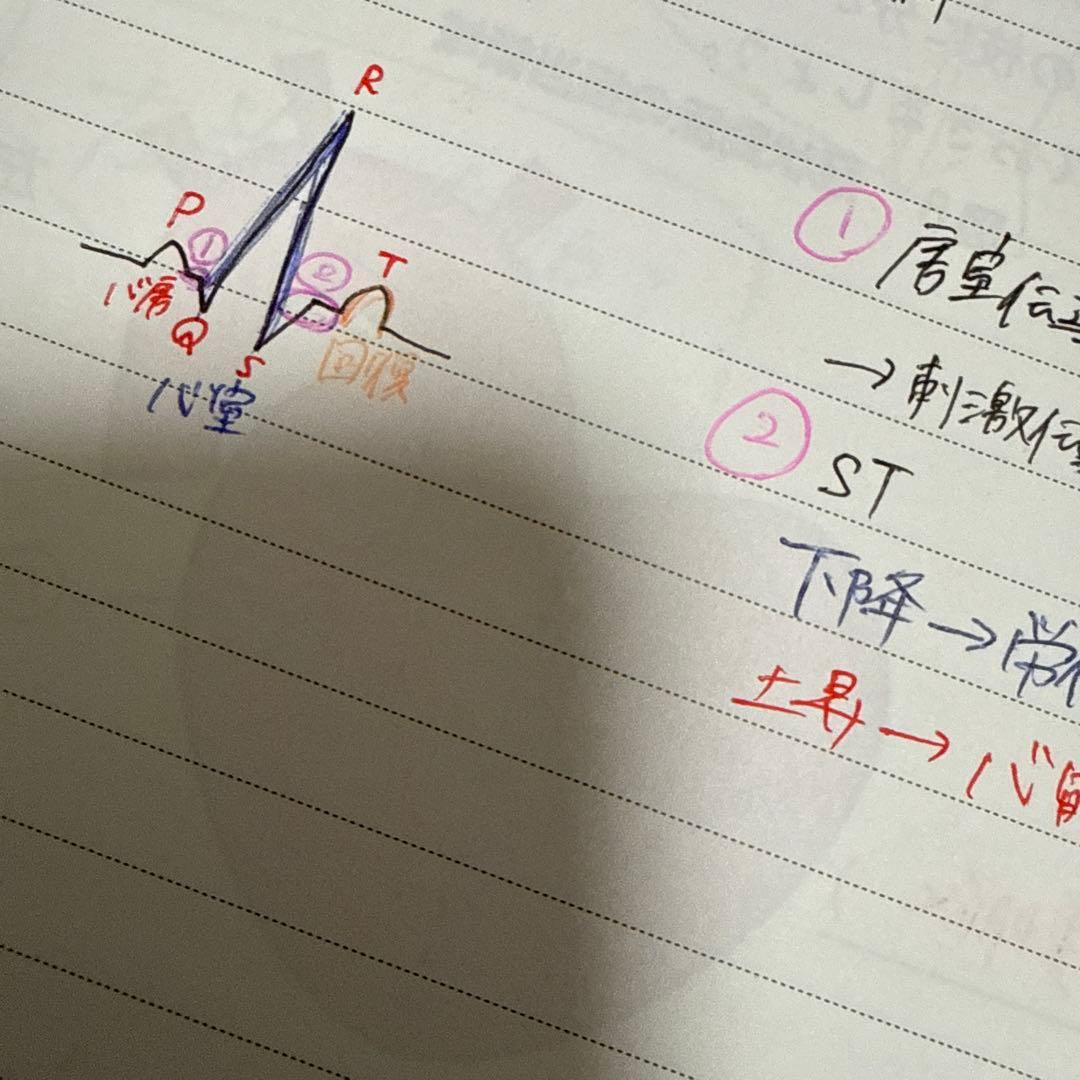 R
P
①
②
T
心房
Q
S
回復
心室
① 房室伝
→刺激伝
② ST
下降→労
上昇→心筋